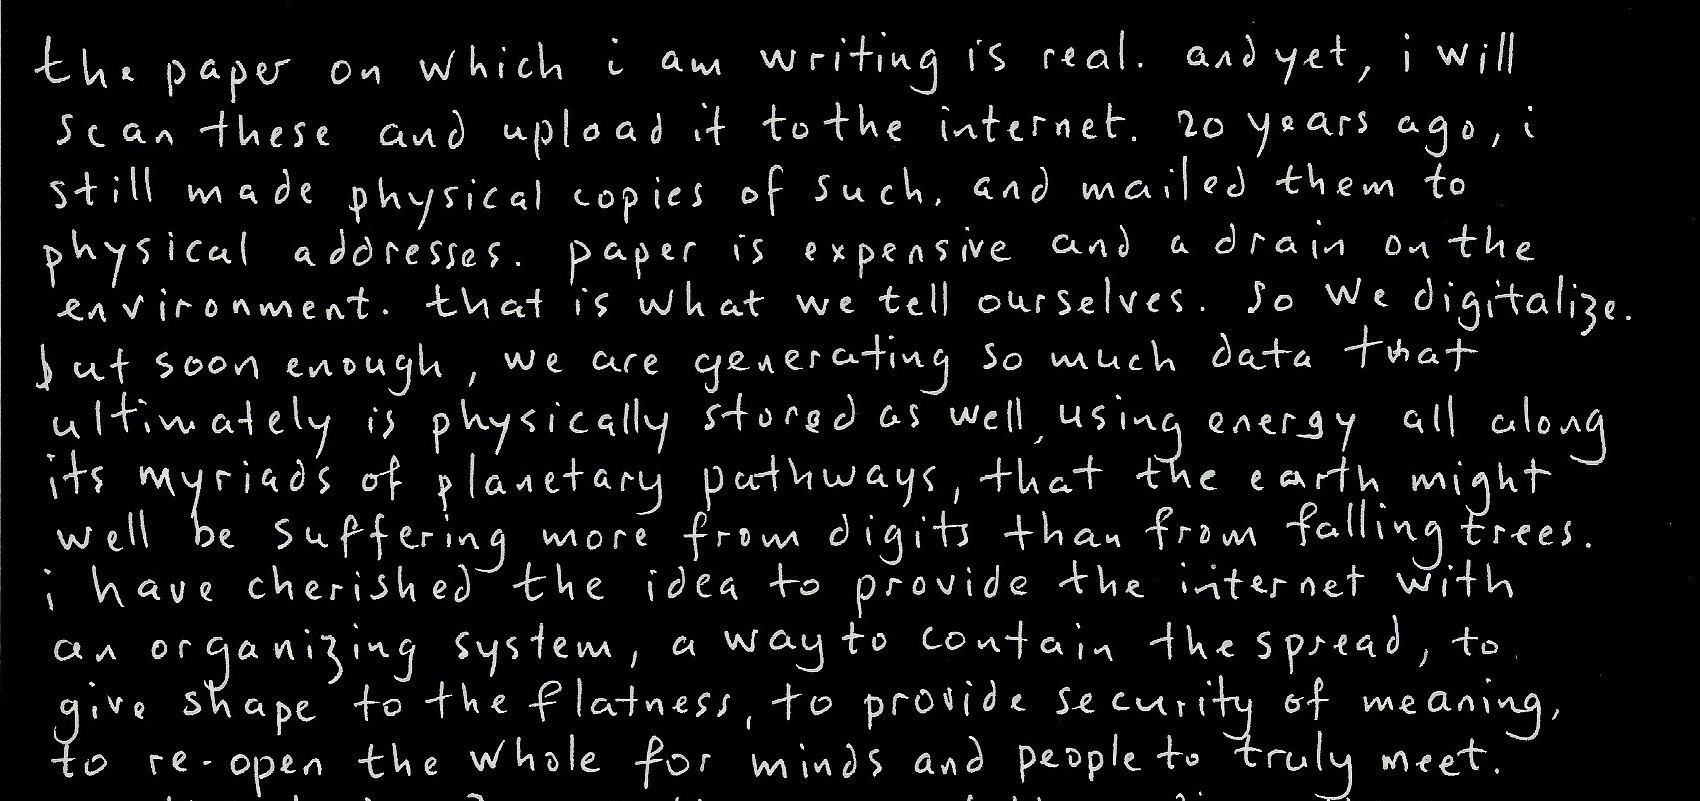 the paper on which i am writing is real. and yet, i will
scan these and upload it to the internet. 20 years ago, i
still made physical copies of such, and mailed them to
physical addresses. paper is expensive and a drain on the
environment. that is what we tell ourselves. so we digitalize.
but soon enough, we are generating so much data that
ultimately is physically stored as well, using energy all along
its myriads of planetary pathways, that the earth might
well be suffering more from digits than from falling trees.
i have cherished the idea to provide the internet with
an organizing system, a way to contain the spread, to
give shape to the flatness, to provide security of meaning,
to re-open the whole for minds and people to truly meet.